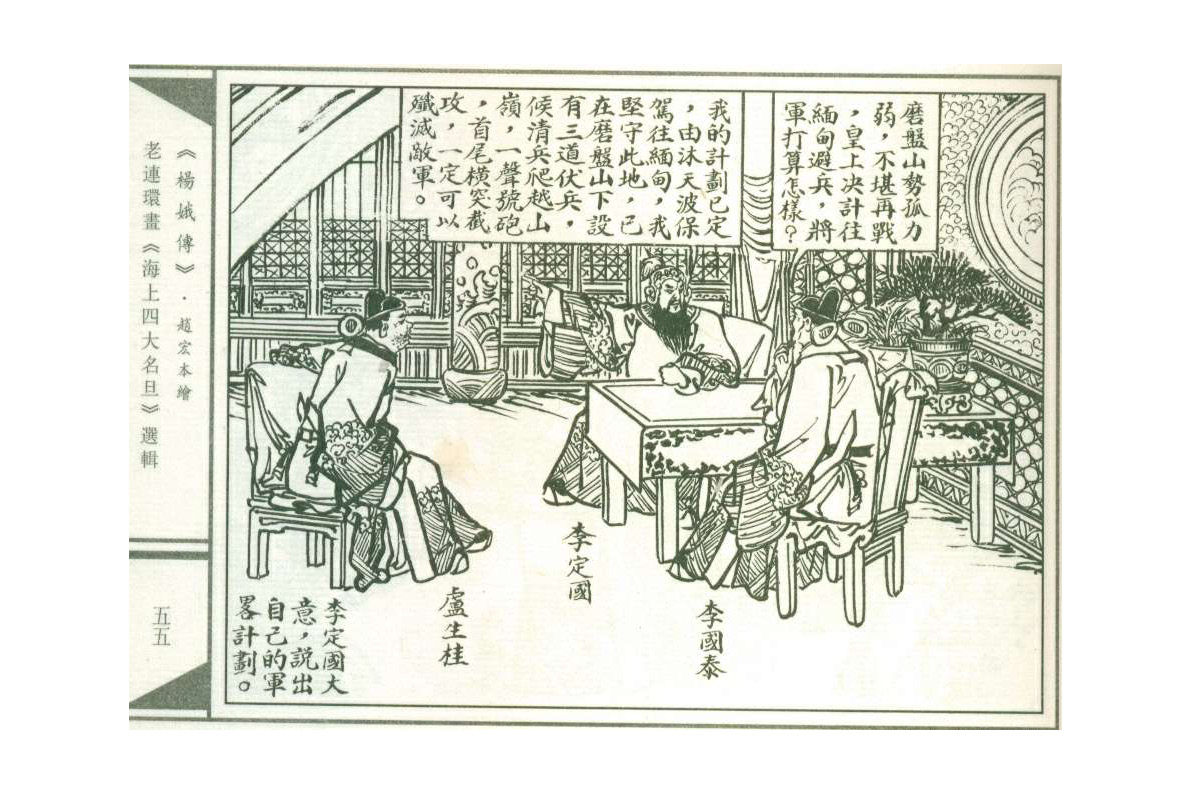 磨盤山勢孤力
弱，不堪再戰
，皇上决計往
緬甸避兵，將
軍打算怎樣？
我的計劃已定
，由沐天波保
駕往緬甸，我
堅守此地，已
在磨盤山下設
有三道伏兵，
候清兵爬越山
嶺，一聲號砲
，首尾橫突截
攻，一定可以
殲滅敵軍。
李國泰
李定國
盧生桂
李定國大
意，説出
自己的軍
畧計劃。
《楊娥傳》·趙宏本繪
老連環畫《海上四大名旦》選輯
五五